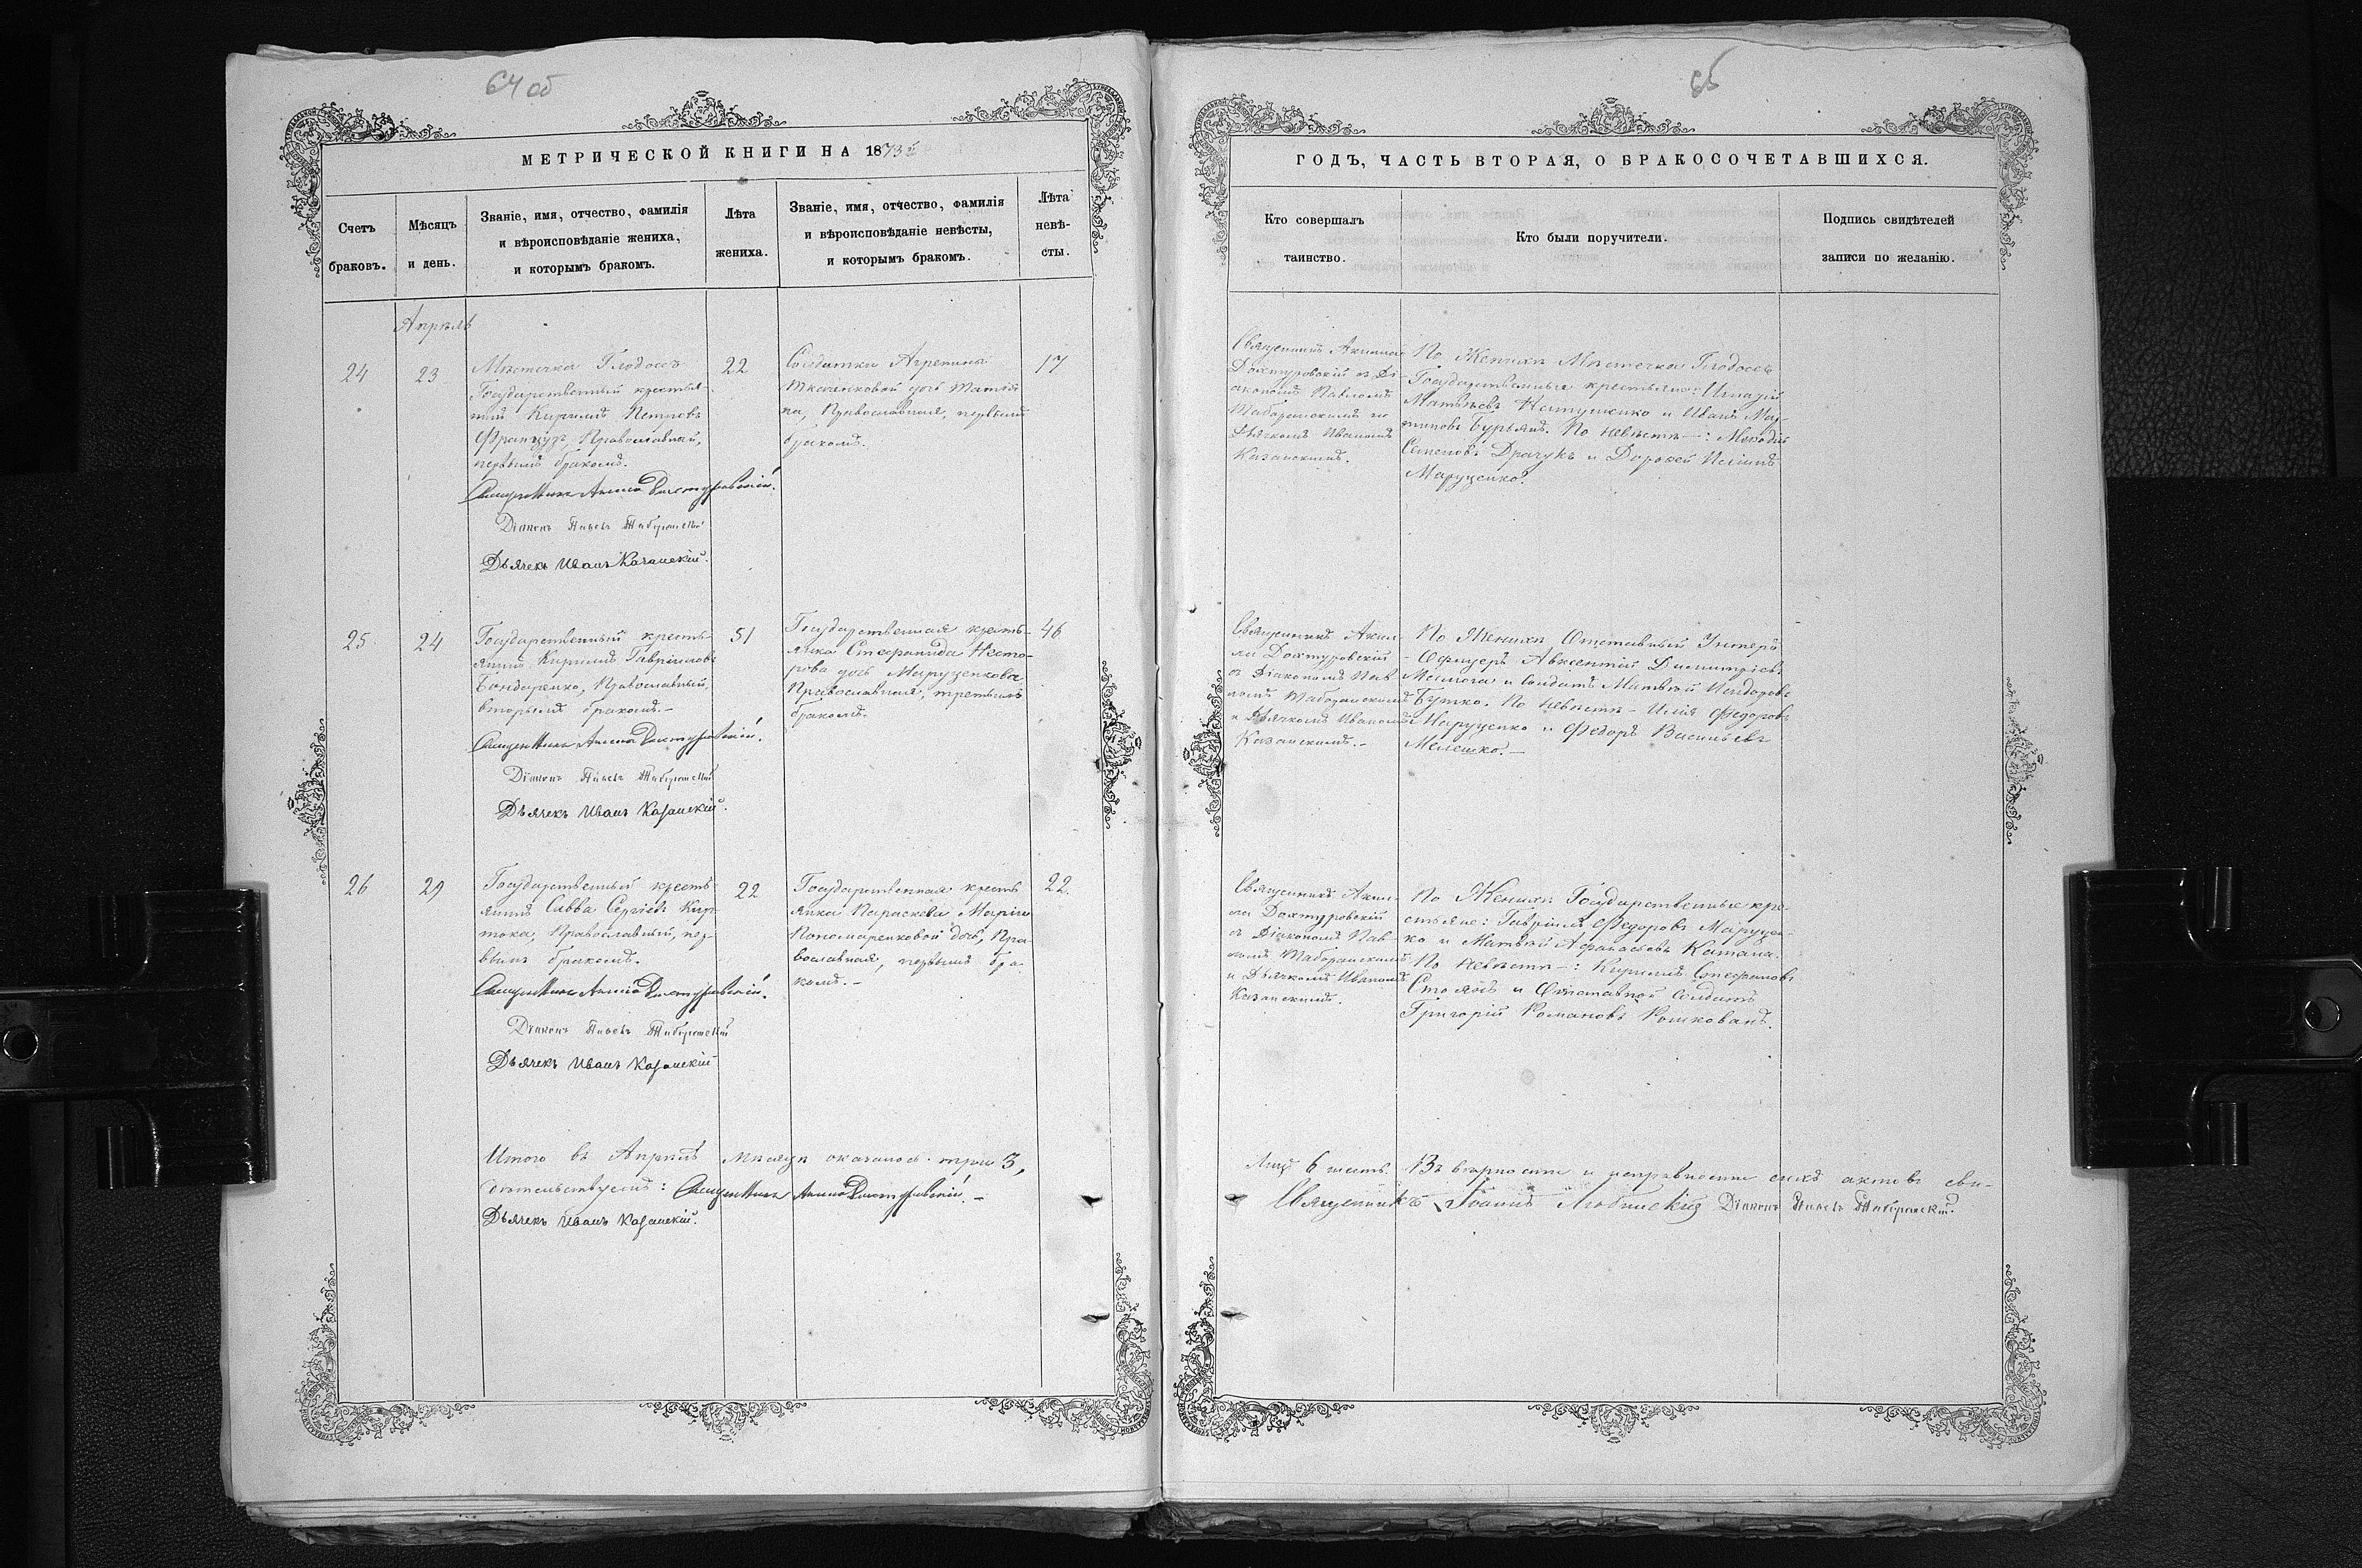 64 об
МЕТРИЧЕСКОЙ КНИГИ НА 1873й
Счетъ
браковъ.
Мѣсяцъ
и день.
Званіе, имя, отчество, фамилія
и вѣроисповѣданіе жениха,
и которымъ бракомъ.
Лѣта
жениха.
Званіе, имя, отчество, фамилія
и вѣроисповѣданіе невѣсты,
и которымъ бракомъ.
Лѣта
невѣ-
сты.
Апрѣль
24
23
Мѣстечка Глодоссъ
Государственный крестья-
нинъ Кириллъ Петровъ
Французъ, Православный,
первымъ бракомъ.
Священникъ Доктуровскій.
Діаконъ Павелъ Таборанскій
Дьячекъ Иванъ Казанскій.
22
Солдатки Агрепина
Ткаченковой дочь
Православная, первымъ
бракомъ.
17
25
24
Государственный кресть-
янинъ Кириллъ Гавріиловъ
Бондаренко, Православный,
вторымъ бракомъ.-
Священникъ Доктуровскій.
Діаконъ Павелъ Таборанскій
Дьячекъ Иванъ Казанскій.
51
Государственная кресть-
янка Стефанида Несто-
рова дочь Маруценкова
Православная, третьимъ
бракомъ.
46
26
29
Государственный кресть-
янинъ Савва Сергіевъ Кир-
тока, Православный, пер-
вымъ бракомъ.
Священникъ Доктуровскій.
Діаконъ Павелъ Таборанскій
Дьячекъ Иванъ Казанскій
22
Государственная кресть
янка Параскева Маріи
Пономаренковой дочь, Пра
вославная, первымъ бра-
комъ.-
22.
Итого въ Апрѣлѣ мѣсяцѣ оказалось три 3,
дѣтельствуемъ: Священникъ Доктуровскій.-
Дьячекъ Иванъ Казанскій.
65
ГОДЪ, ЧАСТЬ ВТОРАЯ, О БРАКОСОЧЕТАВШИХСЯ.
Кто совершалъ
таинство.
Кто были поручители.
Подпись свидѣтелей
записи по желанію.
Священникъ
Доктуровскій съ Ді-
акономъ Павломъ
Таборанскимъ и
Дьячкомъ Иваномъ
Казанскимъ.
По Женихѣ Мѣстечка Глодоссъ
Государственные крестьяне: Игнатій
Матвѣевъ и Иванъ Мар-
тиновъ Бурьянъ. По невѣстѣ-: Меѳодій
Семеновъ Драчукъ и Дороѳей
Маруценко.
Священникъ
Доктуровскій
съ Діакономъ Пав-
ломъ Таборанскимъ
и Дьячкомъ Иваномъ
Казанскимъ.-
По Женихѣ Отставный Унтеръ
-Офицеръ Авксентій Димитріевъ
и Солдатъ Матвѣй Исидоровъ
Бутко. По невѣстѣ- Илія Федоровъ
Маруценко и Федоръ Васильевъ
Мелешко.-
Священникъ
Доктуровскій
съ Діакономъ Пав-
ломъ Таборанскимъ
и Дьячкомъ Иваномъ
Казанскимъ.
По Женихѣ Государственные кре-
стьяне: Гавріилъ Федоровъ Маруцен-
ко и Матвѣй Афанасьевъ Катана.
По невѣстѣ-: Кириллъ Стефановъ
Стоянъ и Отставной Солдатъ
Григорій Романовъ Рошкованъ.
Лицъ 6 шесть. Въ вѣрности и исправности сихъ актовъ сви-
Священникъ Іоаннъ Діаконъ Павелъ Таборанскій.